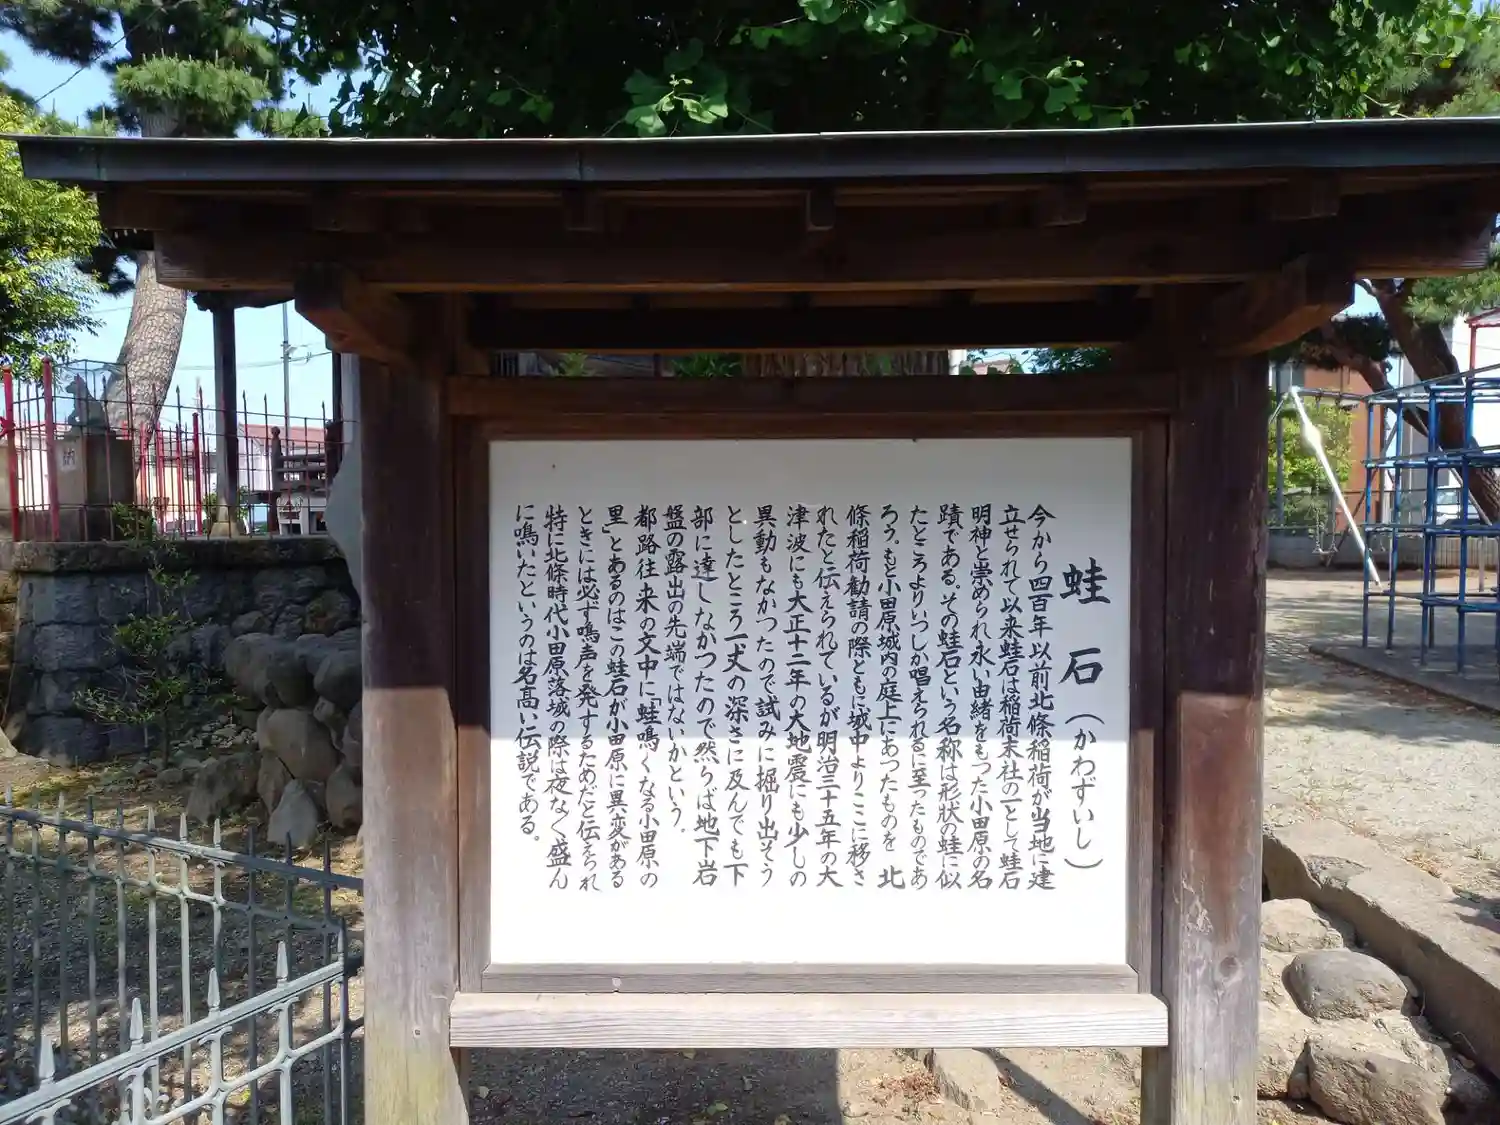 蛙石（かわずいし）
今から四百年以前北條稲荷が当地に建
立せられて以来蛙石は稲荷末社の一として蛙石
明神と崇められ永い由緒をもつた小田原の名
蹟である。その蛙石という名称は形状の蛙に似
たところよりいつしか唱えられるに至つたものであ
ろう。もと小田原城内の庭上にあつたものを 北
條稲荷勧請の際ともに城中よりここに移さ
れたと伝えられているが明治三十五年の大
津波にも大正十二年の大地震にも少しの
異動もなかつたので試みに掘り出そう
としたところ一丈の深さに及んでも下
部に達しなかつたので然らば地下岩
盤の露出の先端ではないかという。
都路往来の文中に「蛙鳴くなる小田原の
里」とあるのはこの蛙石が小田原に異変がある
ときには必ず鳴声を発するためだと伝えられ
特に北條時代小田原落城の際は夜なく盛ん
に鳴いたというのは名高い伝説である。